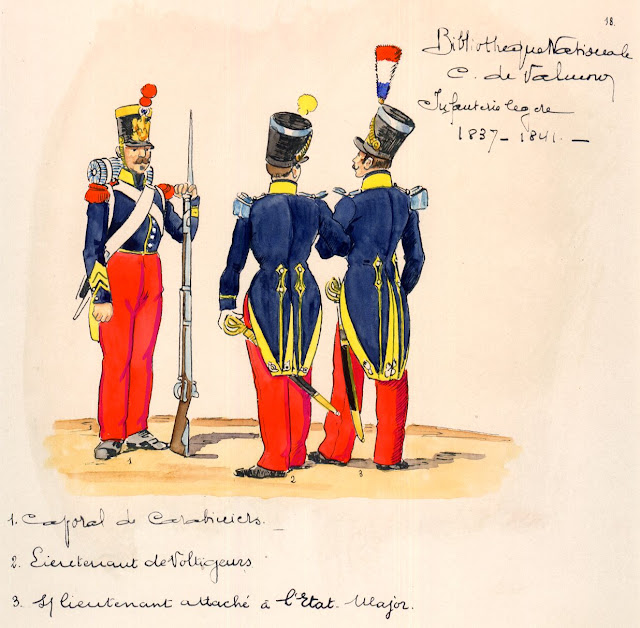 18.
Bibliothèque Nationale
C. de Valmont
Infanterie légère
1837 - 1841. -
1
2
3
1. Caporal de Carabiniers. -
2. Lieutenant de Voltigeurs
3. S/ lieutenant attaché à l'Etat-Major.